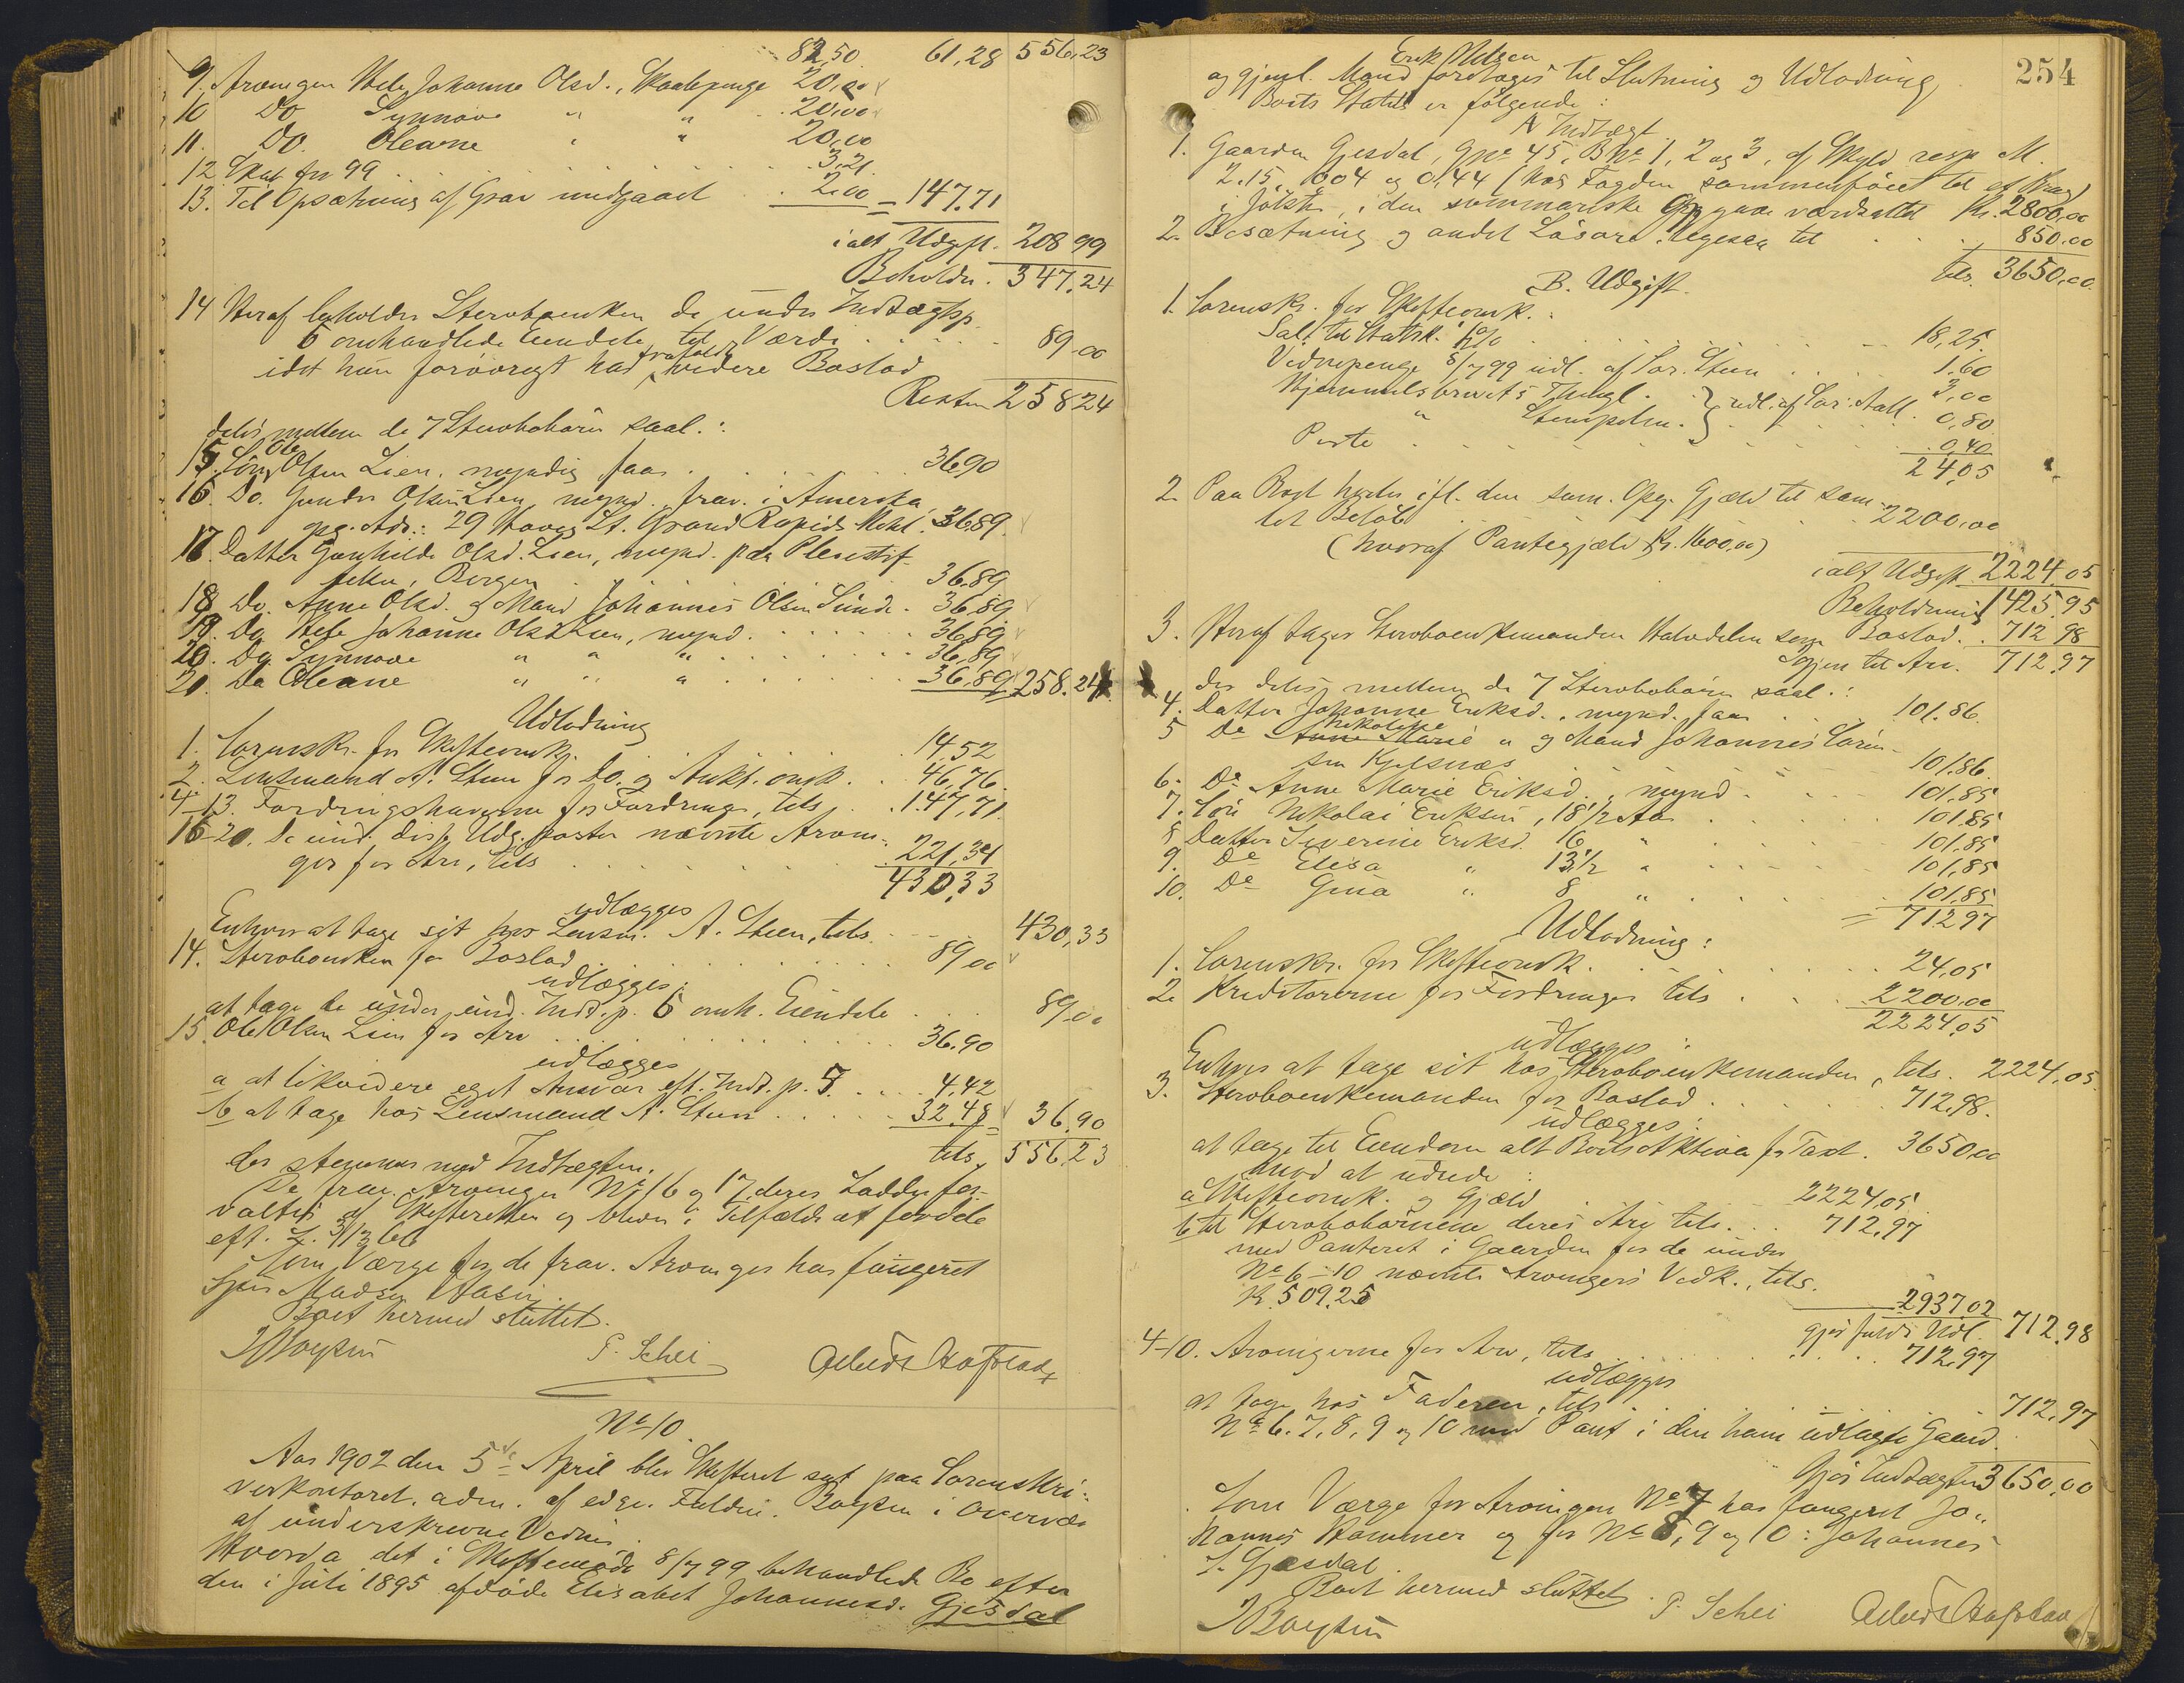 82,50 61,28 556,23
9. Arvingen Hele Johanne Olsd., Skaalepenge 20,00
10 Do Synnøve " " 20,00
11. Do. Oleane " " 20,00
12 Skat for 99 3,21
13. Til Opsætning af Grav medgaaet 2,00 = 147.71
ialt Udgift. 208 99
Beholdn. 347,24
14 Heraf beholder Stervboenken de under Indtægtsp.
6 omhandlede Eiendele til Værdi 89,00
idet hun forøvrigt har frafaldt videre Boslod
Resten 258 24
deles mellem de 7 Stervbobørn saal.:
15. Søn Ole Olsen Lien, myndig faar 36,90
16. Do. Gunder Olsen Lien mynd. frav. i Amerika
opg. Adr.: 29 St. Grand Rapids Mich. 36,89
17. Datter Gunhilde Olsd. Lien, mynd. paa Pleiestif-
telsen, Bergen 36,89
18 Do. Anne Olsd. g. Mand Johannes Olsen Sunde. 36,89
19. Do Hele Johanne Olsd Lien, mynd. 36,89
20. Do Synnøve " " " 36,89
21. Do Oleane " " " 36,89 258.24
Udlodning
1. Sorenskr. for Skifteomk. 14,52
2. Lensmand A. Steen for Do. og Aukt. omk. 46,76
4-13. Fordringshaverne for Fordringer, tils 147,71
16-20. De und. disse Udg. poster nævnte Arvin-
ger for Arv, tils 221,34
430,33
udlægges
Enhver at tage sit hos Lensm. A. Steen, tils. 430,33
14. Stervboenken for Boslod 89,00
udlægges:
at tage de under Ind. p. 6 omh. Eiendele 89,00
15. Ole Olsen Lien for Arv 36,90
udlægges
a at likvidere eget Ansvar eft. Indt. p. 7. 4,42
b at tage hos Lensmand A. Steen 32,48 = 36,90
der stemmer med Indtægten. tils. 556,23
De frav. Arvinger No 16 og 17 deres Lodder for-
valtes af Skifteretten og bliver i Tilfælde at fordele
eft. L. 3/1366
Som Værge for de frav. Arvinger har fungeret
Madsen
Boet hermed sluttet.
P. Schei
No 10.
Aar 1902 den 5te April blev Skifteret sat paa Sorenskri-
verkontoret, adm. af edsv. Fuldm. i Overvær
af underskrevne Vidner.
Hvorda det i Skiftemøde 8/7 99 behandlede Bo efter
den i Juli 1895 afdøde Elisabet Johannesd. Gjesdal
254
Erik Nilsen
og gjenl. Mand foretages til Slutning og Udlodning
Boets Status er følgende:
A Indtægt
1. Gaarden Gjesdal, Gno 45, Bno 1, 2 og 3, af Skyld resp M.
2.15, 0,04 og 0,44 (hos Fogden sammenføiet til et Brug)
i Jølster, i den summariske Opgave værdsattet Kr. 2800,00
2. Besætning og andet Løsøre til 850,00
tils. 3650,00
B. Udgift.
1. Sorenskr. for Skifteomk.:
Sal. til Statsk. ½% 18,25
Vidnepenge 8/7 99 udl. af Sor. Steen 1,60
Hjemmelsbrevets Thingl. } udl. af Sor. 3,00
" Stempelm. } 0,80
Porto 0,40
24,05
2. Paa Boet hviler ifl. den sum. Opg. Gjæld til sam-
let Beløb 2200,00
(hvoraf Pantegjæld Kr. 1600,00)
ialt Udgift 2224,05
Beholdning 1425,95
3. Heraf tager Stervboenkemanden Halvdelen som Boslod. 712 98
Igjen til Arv. 712,97
der deles mellem de 7 Stervbobørn saal.:
4. Datter Johanne Eriksd., mynd. faar 101.86
5 Do Nikoline " g. Mand Johannes Søren-
sen Kjøsnæs 101,86
6. Do Anne Marie Eriksd., mynd 101,85
7. Søn Nikolai Eriksen, 18½ Aar 101,85
8 Datter Severine Eriksd. 16 " 101,85
9. Do Elisa " 13½ " 101,85
10. Do Gina " 8 " 101,85
= 712,97
Udlodning:
1. Sorenskr. for Skifteomk. 24,05
2. Kreditorerne for Fordringer tils 2200,00
2224,05
udlægges:
Enhver at tage sit hos Stervboenkemanden, tils. 2224,05
3. Stervboenkemanden for Boslod 712,98.
udlægges:
at tage til Eiendom alt Boets Aktiva for Taxt. 3650,00
mod at udrede:
a Skifteomk. og Gjæld 2224,05
b til Stervbobørnene deres Arv tils. 712,97
med Panteret i Gaarden for de under
No 6-10 nævnte Arvingers Vedk., tils.
K. 509,25
2937,02
gjør fuldt Udl. 712,98
4-10. Arvingerne for Arv, tils 712,97
udlægges
at tage hos Faderen, tils 712,97
No 6. 7, 8, 9 og 10 med Pant i den ham udlagte Gaard.
Gjør Indtægten 3650,00
Som Værge for Arvingen No 7 har fungeret Jo-
hannes Hammer og for No 8, 9 og 10: Johannes
S. Gjesdal.
Boet hermed sluttet.
P. Schei